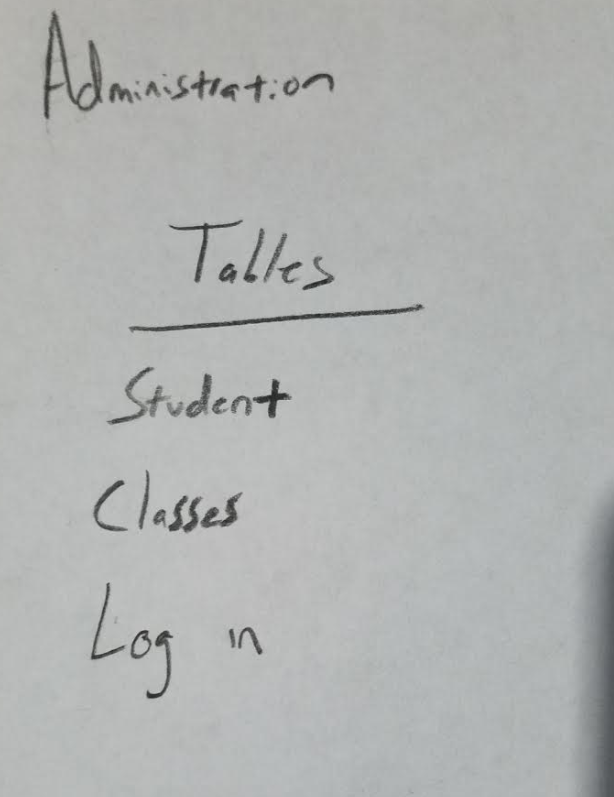 Administration
Tables
Student
Classes
Log in